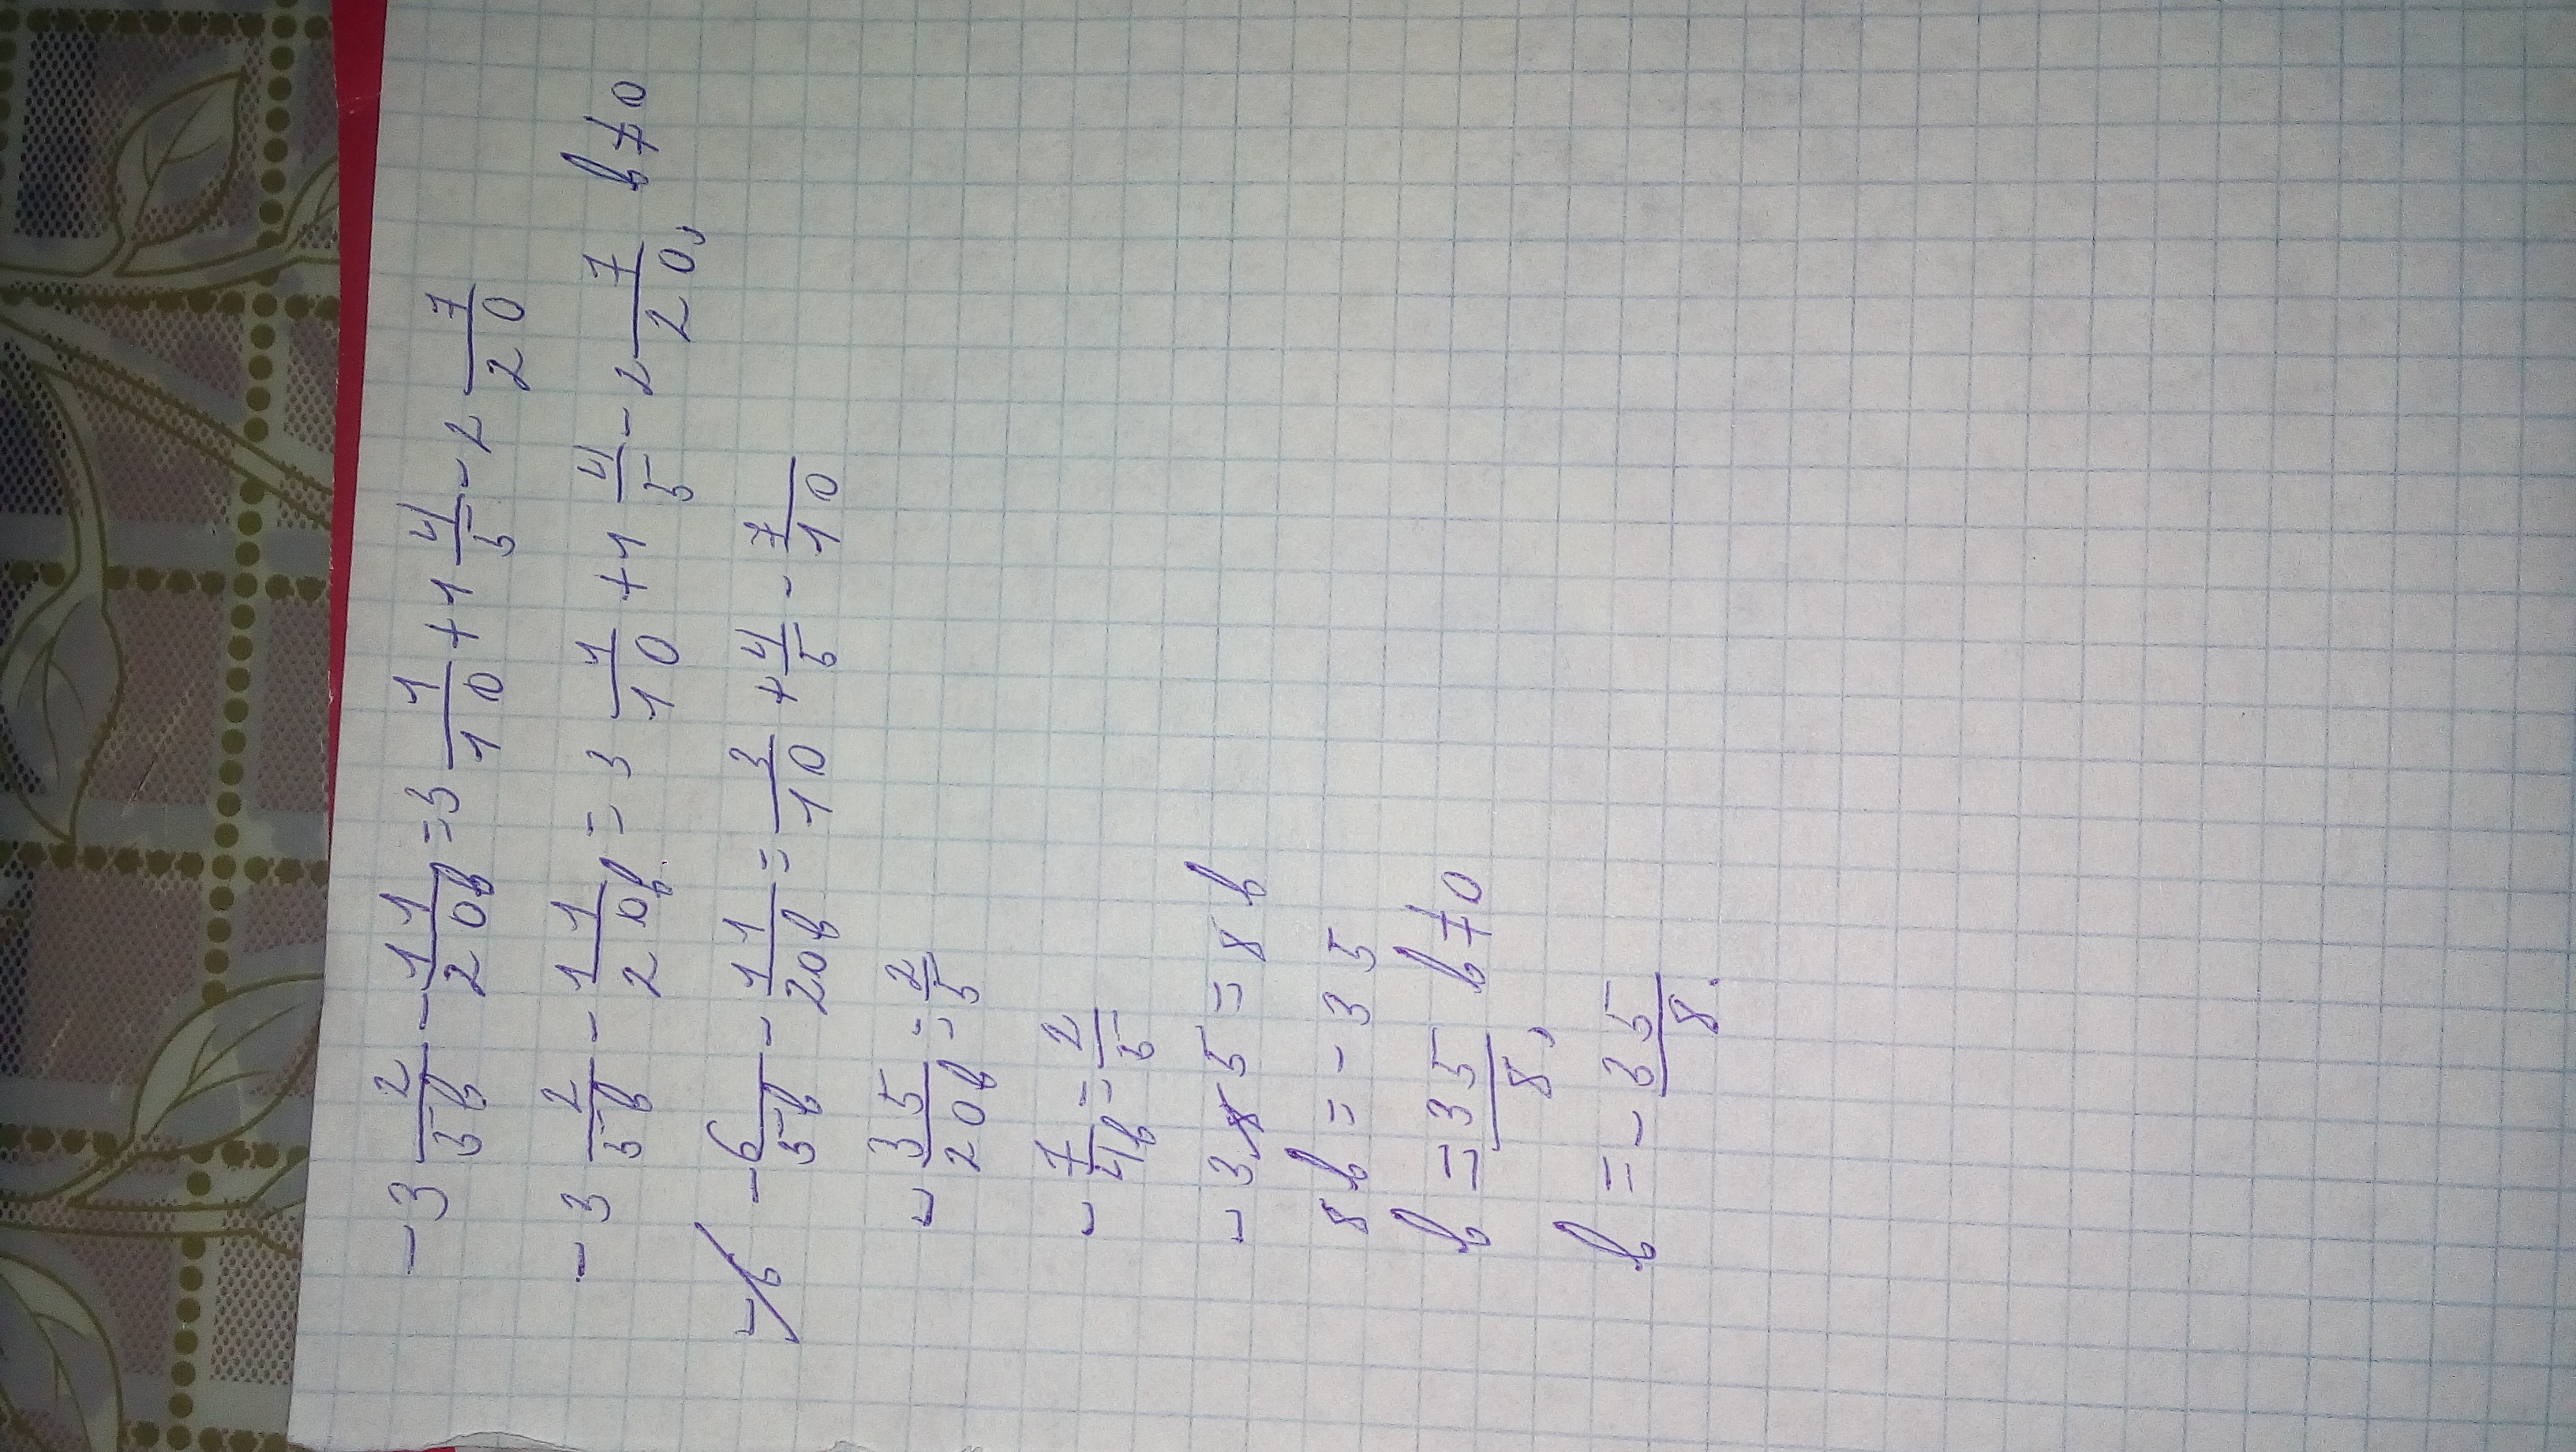 -3 2/5b - 11/20b = 3 1/10 + 1 4/5 - 2 7/20
-3 2/5b - 11/20b = 3 1/10 + 1 4/5 - 2 7/20, b≠0
-6/5b - 11/20b = 3/10 + 4/5 - 7/10
- 35/20b = 2/5
- 7/4b = 2/5
-35 = 8b
8b = -35
b = 35/8, b≠0
b = - 35/8.